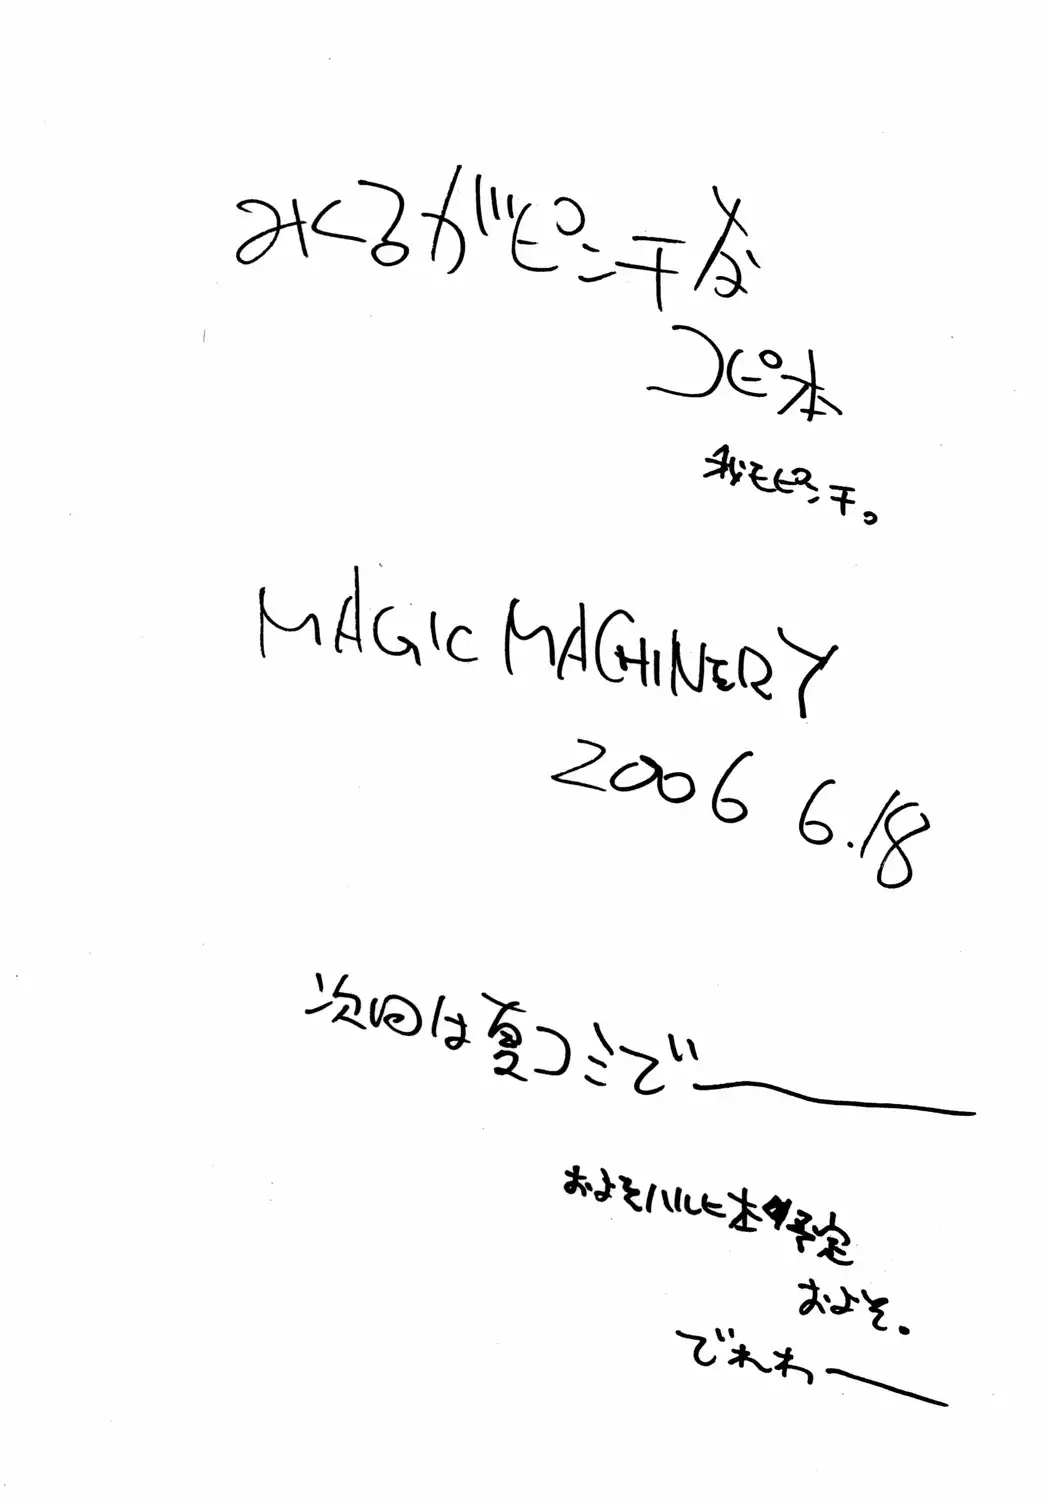 みくるがピンチな
コピ本
我もピンチ。
MAGIC MACHINERY
2006 6.18
次回は夏コミで――
およそハルヒ本予定
およそ。
でわわ――